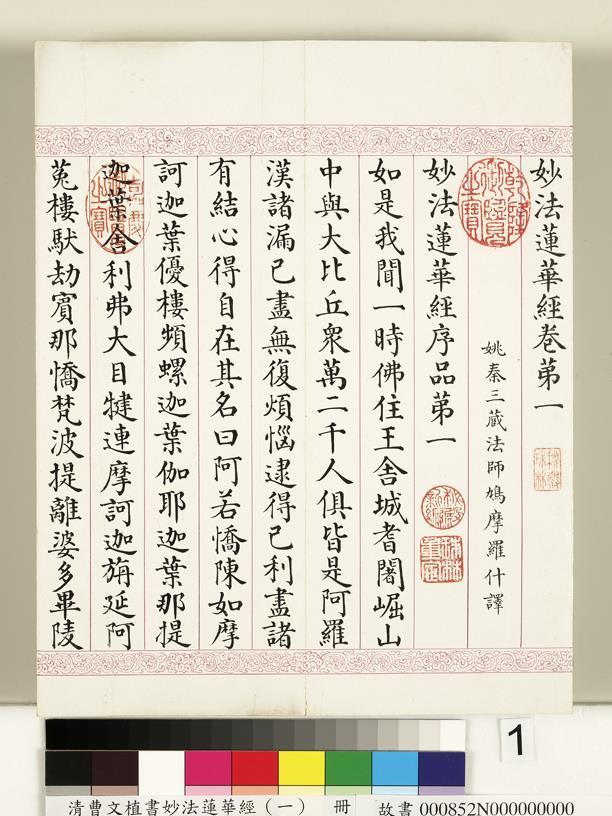 妙法蓮華經卷第一
姚秦三藏法師鳩摩羅什譯
妙法蓮華經序品第一
如是我聞一時佛住王舍城耆闍崛山
中與大比丘眾萬二千人俱皆是阿羅
漢諸漏已盡無復煩惱逮得己利盡諸
有結心得自在其名曰阿若憍陳如摩
訶迦葉優樓頻螺迦葉伽耶迦葉那提
迦葉舍利弗大目犍連摩訶迦旃延阿
㝹樓馱劫賓那憍梵波提離婆多畢陵
乾隆御覽之寶
1
清曹文植書妙法蓮華經（一） 冊 故書 000852N000000000